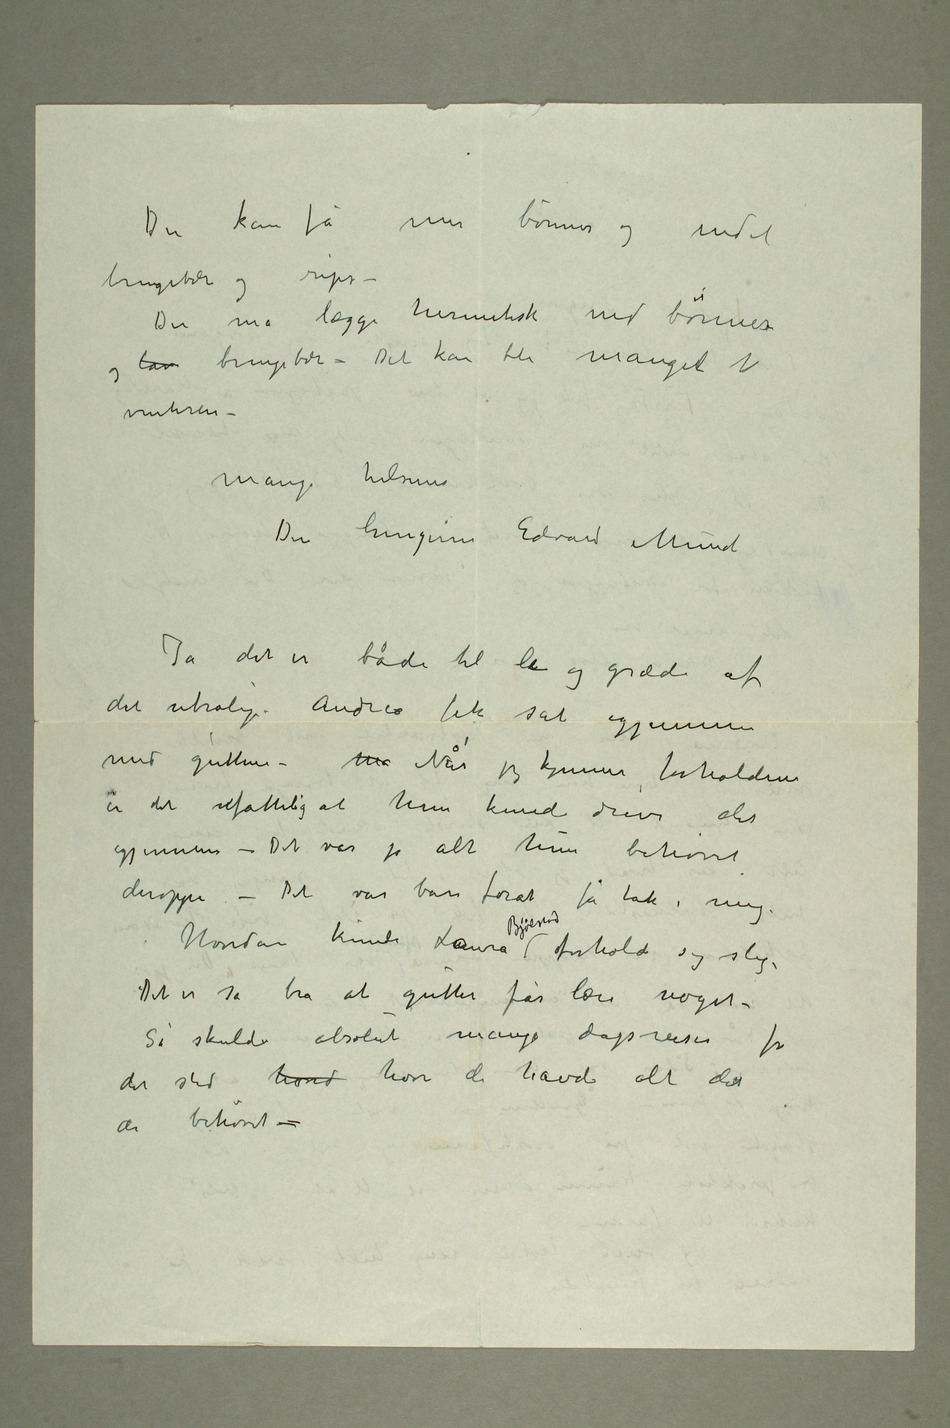 Du kan få mer bönner og endel
bringebær og rips –
Du må lægge hermetisk ned bönner
og bringebær – Det kan bli mangel t
vinteren –
Mange hilsener
Din hengivne Edvard Munch
Ja det er både til le og græde af
det utrolige Andrea fik sat igjennem
med guttene – Når jeg kjenner forholdene
er det ufattelig at hun kunde drive det
igjennem – Det var jo alt hun behövet
deroppe – Det var bare forat få tak i mig.
Hvordan kunde Laura Bjølstad forholde sig slig.
Det er så bra at gutter får lære noget –
Så skulde absolut mange dagsreiser fra
det sted hvor de havde alt det
de behövet –